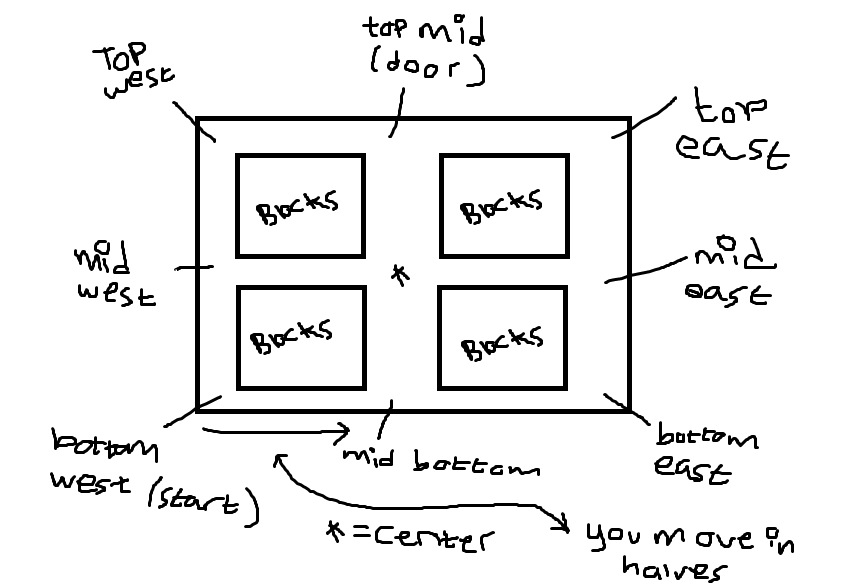 top mid
(door)
TOP
west
top
east
Bocks
Bocks
mid
west
*
mid
east
Bocks
Bocks
bottom
west (start)
mid bottom
bottom
east
*=center
you move in
halves